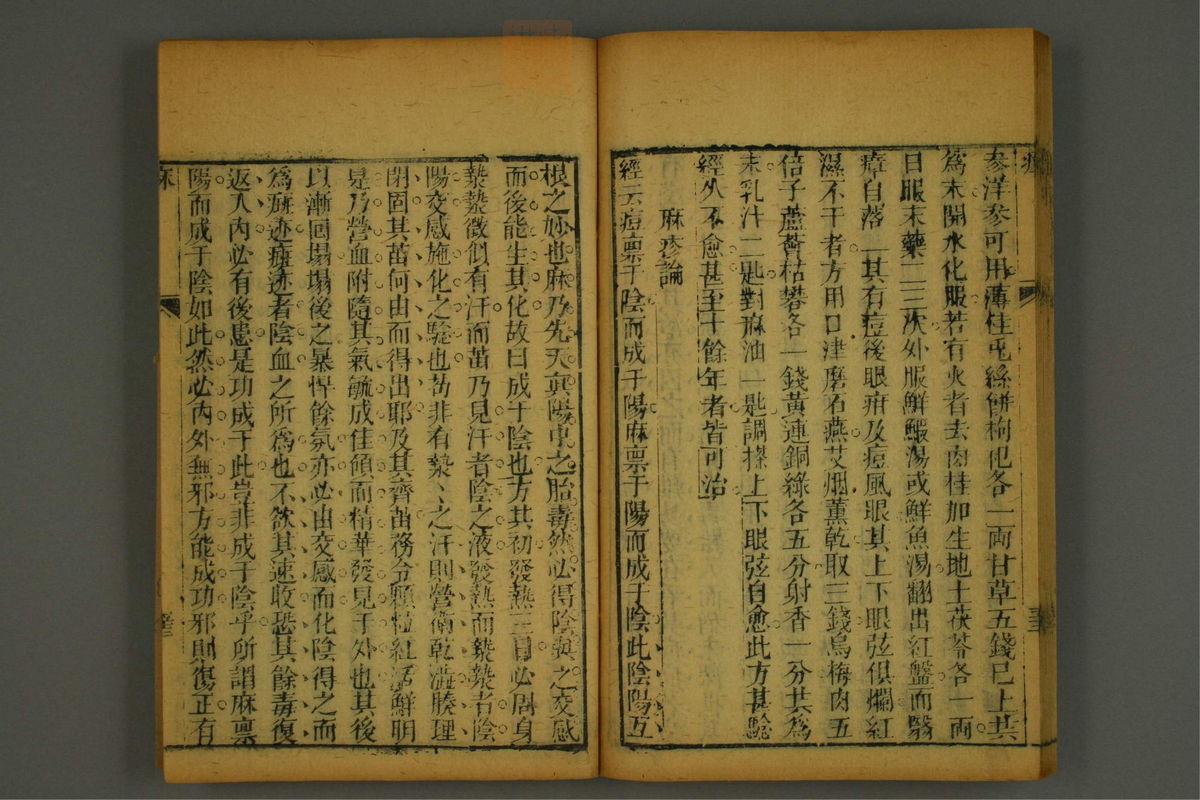 參洋參可用薄佳兎絲餅枸杞各一兩甘草五錢已上共
為末開水化服若有火者去肉桂加生地土茯苓各一兩
日服末藥二三次外服鮮鰕湯或鮮魚湯翻出紅盤而翳
瘴自落一其有痘後眼疳及痘風眼其上下眼弦俱爛紅
濕不干者方用口津磨石燕艾烟薰乾取三錢烏梅肉五
倍子蘆薈枯礬各一錢黃連銅綠各五分射香一分共為
末乳汁二匙對麻油一匙調搽上下眼弦自愈此方甚驗
經久不愈甚至十餘年者皆可治
麻疹論
經云痘禀于陰而成于陽麻禀于陽而成于陰此陰陽互
根之妙也麻乃先天眞陽中之胎毒然必得陰與之交感
而後能生其化故曰成于陰也方其初發熱三日必周身
漐漐微似有汗而苗乃見汗者陰之液發熱而漐漐者陰
陽交感施化之驗也茍非有漐、之汗則營衛乾澁腠理
閉固其苗何由而得出耶及其齊苗務令顆粒紅活鮮明
是乃營血附隨其氣毓成佳領而精華發見于外也其後
以漸囘塲塲後之暴悍餘氛亦必由交感而化陰得之而
為斑迹斑迹者陰血之所為也不欲其速收恐其餘毒復
返入內必有後患是功成于此豈非成于陰乎所謂麻禀
陽而成于陰如此然必內外無邪方能成功邪則傷正有